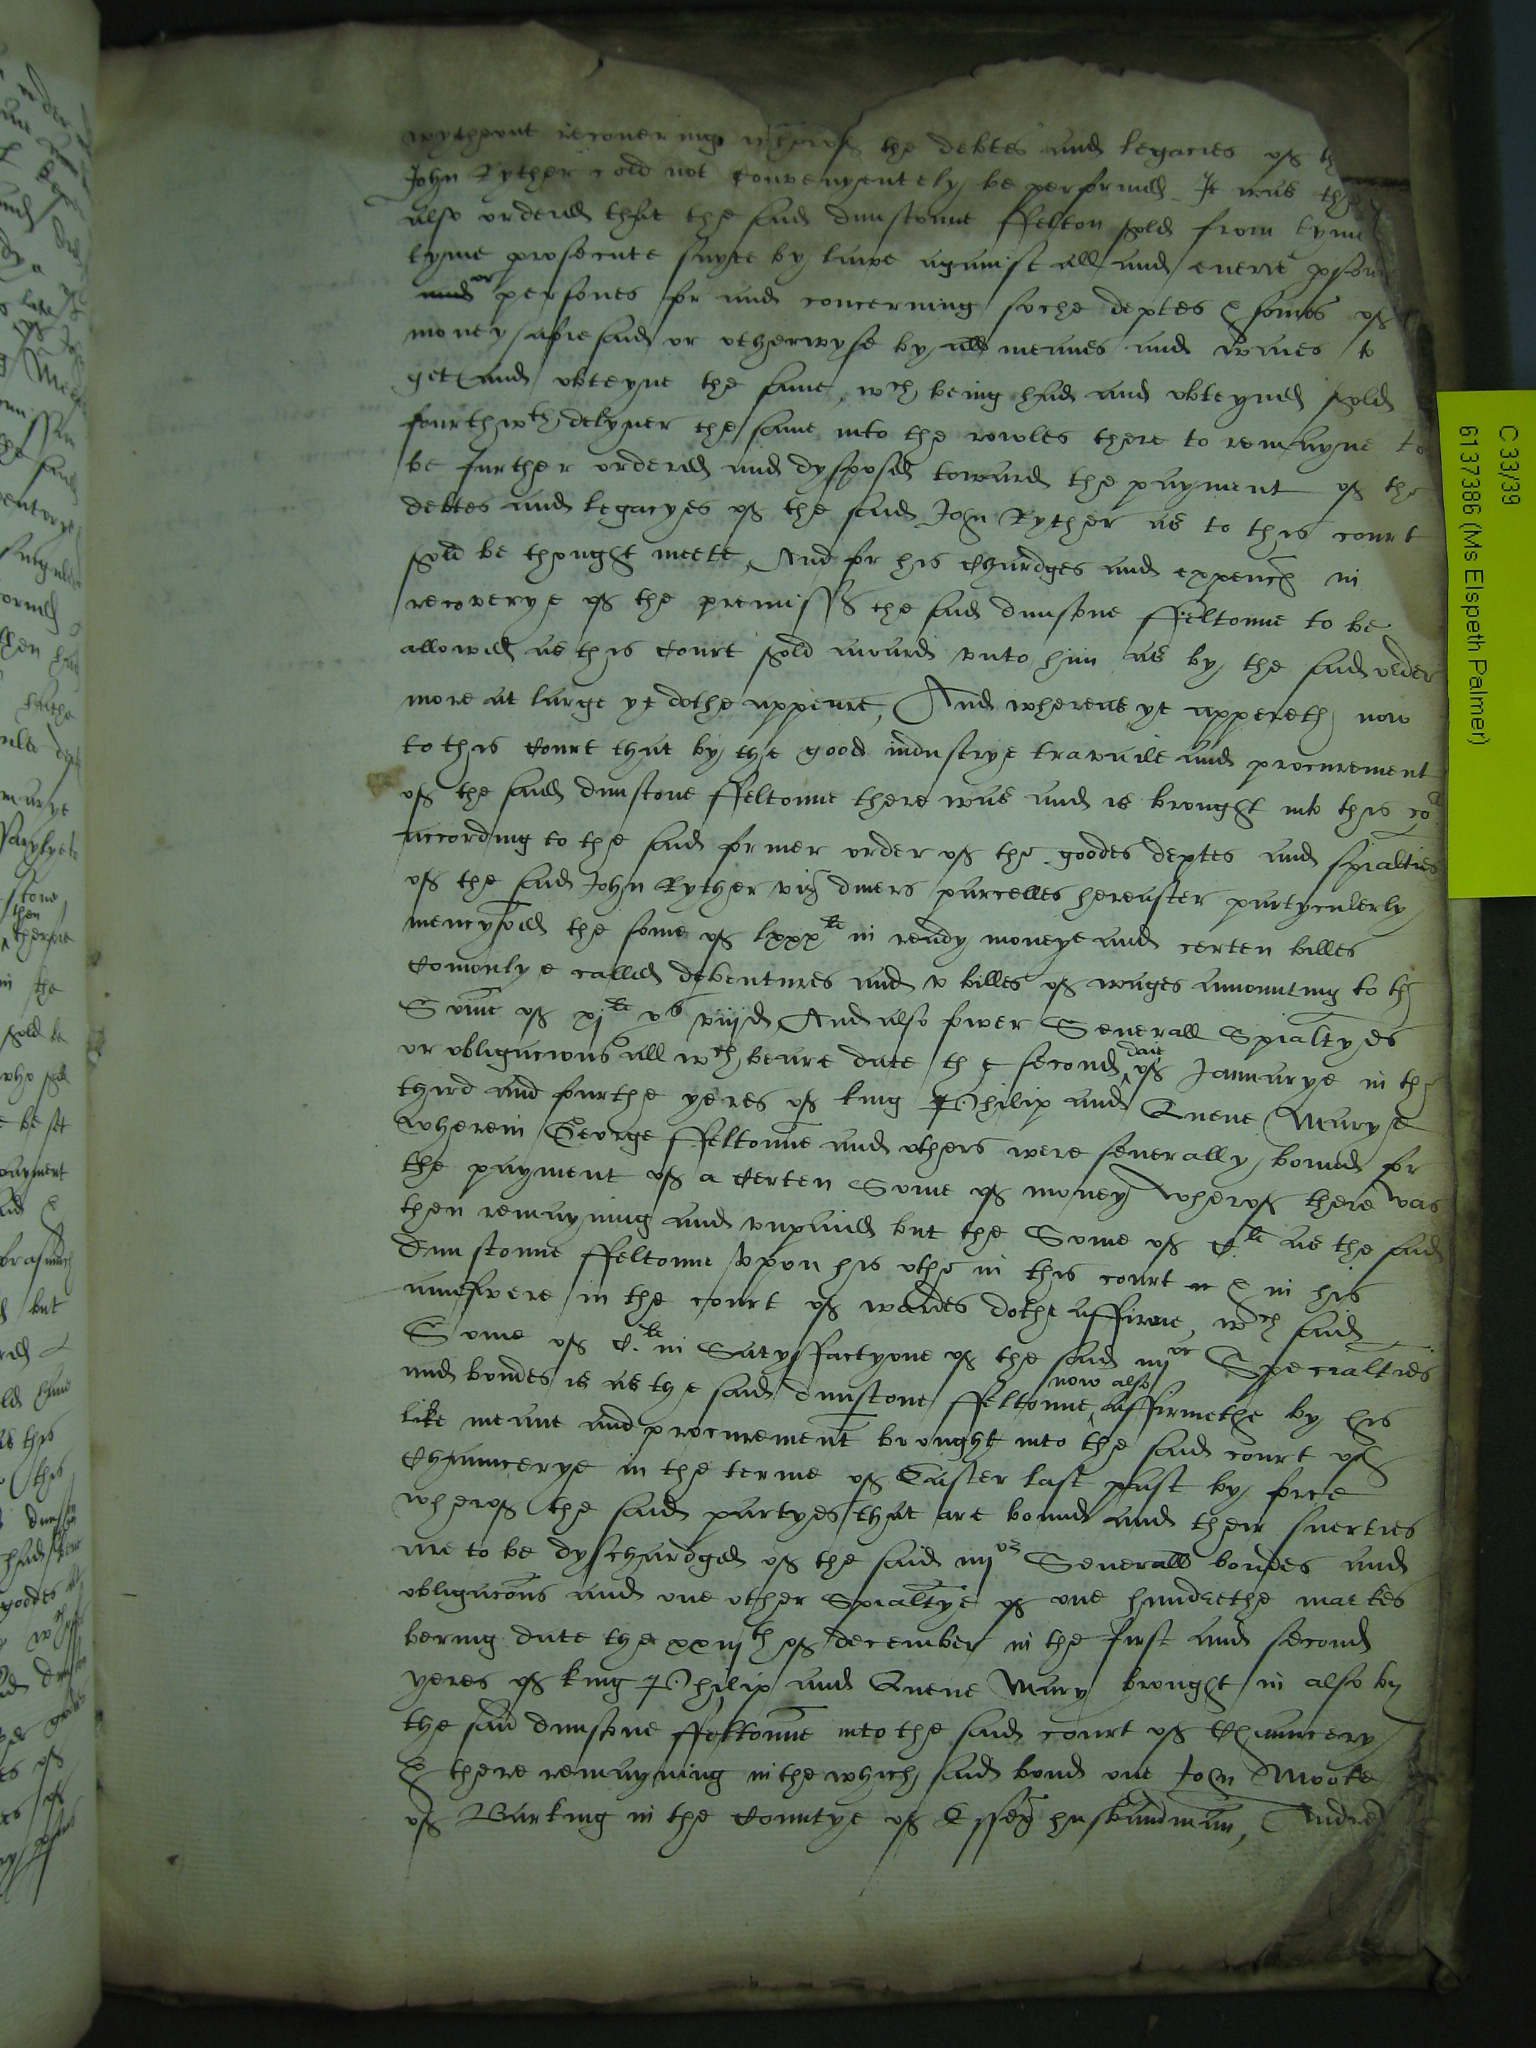 wythout recovering wherof the debtes and legacies of th
John Ryther cold not convenyentely be performed It was th
also ordered that the said dunstonne ffelton shold from tyme
tyme prosecute suyte by lawe against all and everie psone
and or persones for and concerning suche deptes & somes of
money aforesaid or otherwyse by all meanes and waies to
get and obteyne the same, wch being had and obteyned shold
fourthwth delyver the same into the rowles there to remayne to
be further ordered and dysposed toward the payment of the
debtes and legacyes of the said John Ryther as to this court
shold be thought meete, And for his chardges and expencs in
recoverye of the premisses the said dunstone ffeltonne to be
allowed as this Court shold award unto him as by the said order
more at large yt dothe appeare, And whereas yt appereth now
to this Court that by the good industrye travaile and procurement
of the said dunstone ffeltonne there was and is brought into this co
according to the said former order of the goodes deptes and spialties
of the said John Ryther viz divers parcelles hereafter partyculerly
mencyoned the some of lxxxli in ready moneye and certen billes
Comonlye called debentures and v billes of wages amounting to th
Sume of xjli vs viijd And also fower Severall Spialtyes
or obligacions all wch beare date the second daie of Januarye in the
third and fourthe yeres of king Philip and Quene Marye
wherein George ffeltonne and others were severally bound for
the payment of a Certen Sume of money wherof there was
then remayning and unpaied but the Sume of C.li as the said
dunstonne ffeltonne upon his othe in this court & in his
aunswere in the court of wardes dothe affirme, wch said
Sume of C.li in Satysffactyone of the said iiijor Specialties
and bondes is as the said dunstone ffeltonne now also affirmethe by his
like meane and procurement brought into the said court of
Chauncerye in the terme of Easter last past by force
wherof the said partyes that are bound and their suerties
are to be dyschardged of the said iiijor Severall bondes and
obligacons and one other Spialtye of one hundrethe markes
bering date the xxiijth of december in the first and second
yeres of king Philip and Quene Mary brought in also by
the said dunstone ffeltonne into the said court of Chauncery
& there remayning in the which said bond one John Moore
of Barking in the Countye of Essex husbandman, Andre
C 33/39
6137386 (Ms Elspeth Palmer)